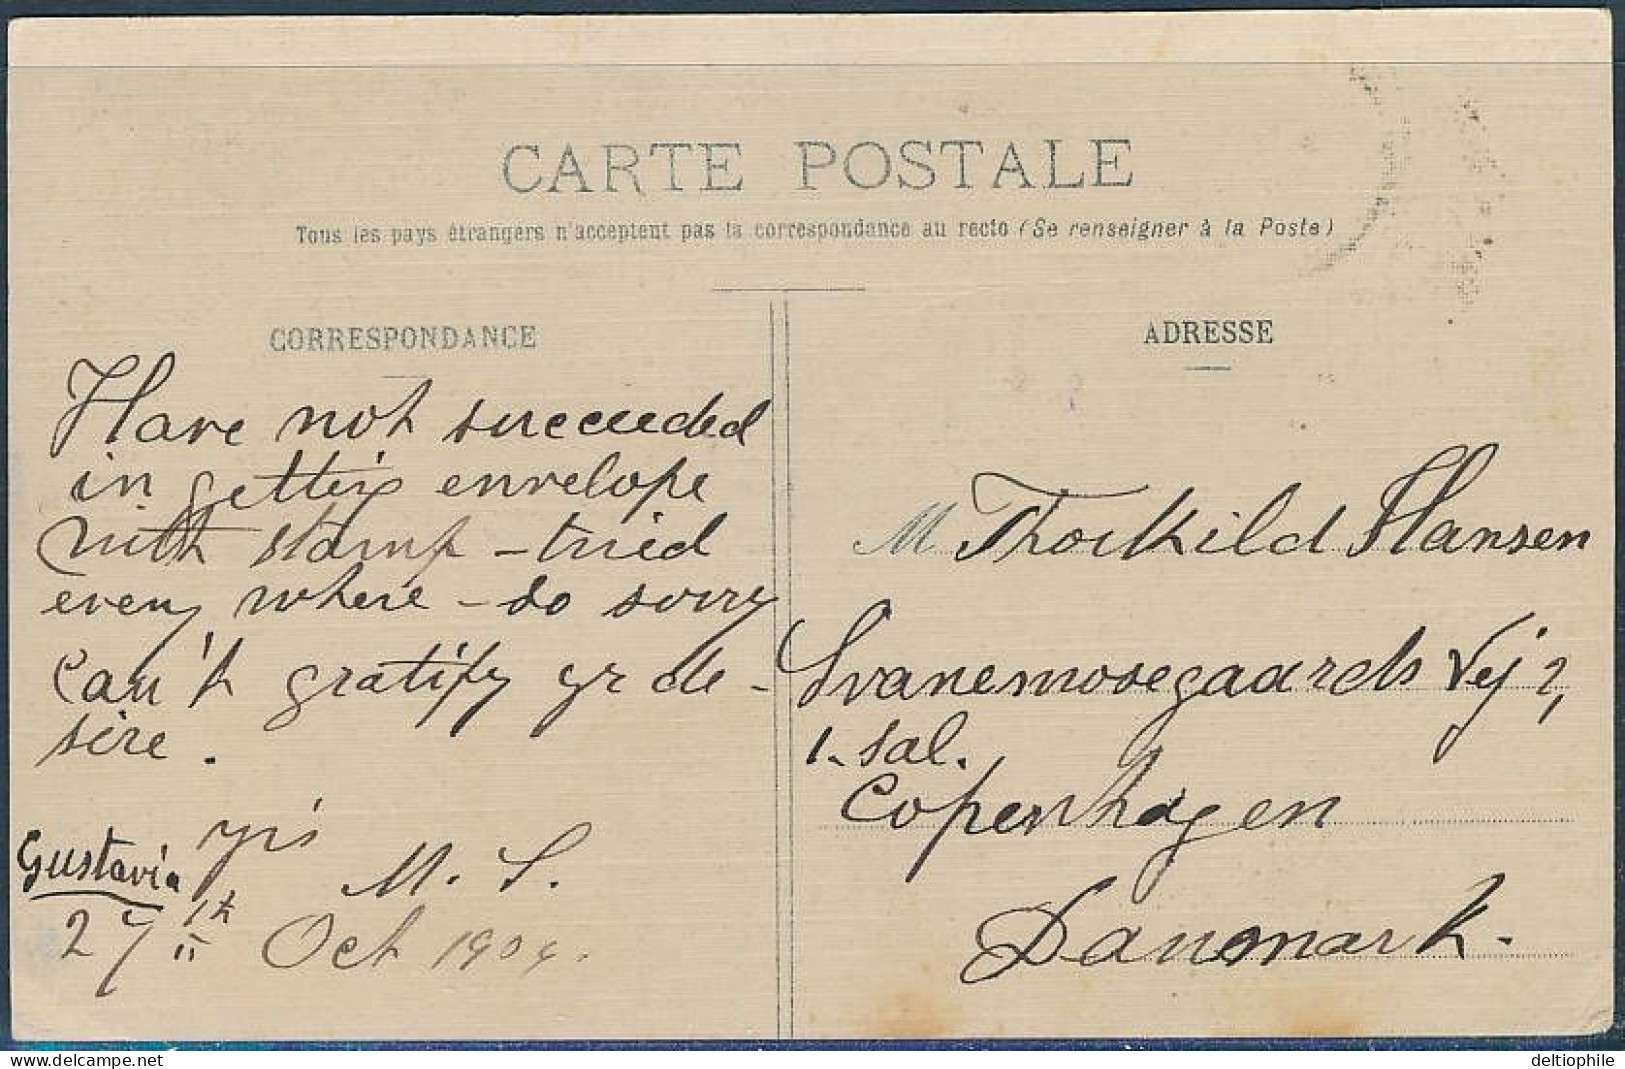 CARTE POSTALE
Tous les pays étrangers n'acceptent pas la correspondance au recto (Se renseigner à la Poste)
CORRESPONDANCE
Have not succeeded
in getting envelope
with stamp - tried
every where - so sorry
can't gratify yr de-
sire.
yrs
M. S.
Gustavia
27th Oct 1909.
ADRESSE
M Thorkild Hansen
Svanemosegaards Vej 2,
1. sal.
Copenhagen
Danmark.
www.delcampe.net
deltiophile